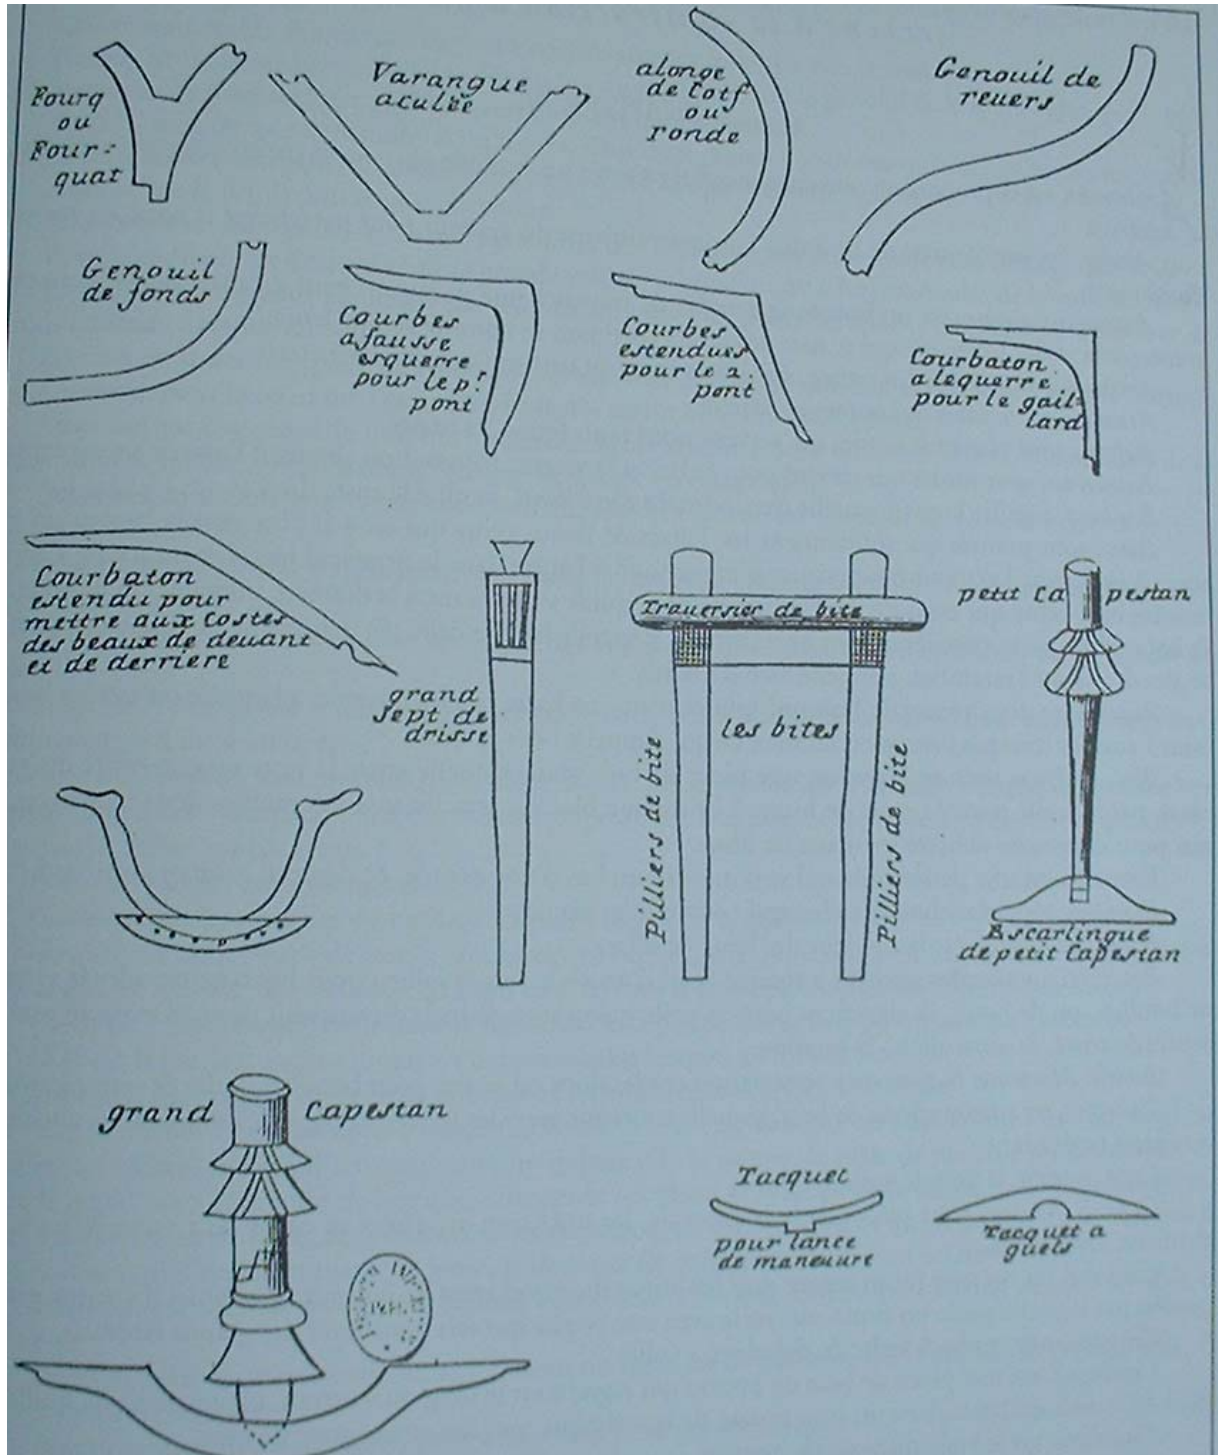 Fourq
ou
Four=
quat
Varangue
aculëe
alonge
de Cotf
ou
ronde
Genouil de
reuers
Genouil
de fonds
Courbes
a fausse
esquerre
pour le pr.
pont
Courbes
estendues
pour le 2.
pont
Courbaton
a lequerre
pour le gail=
lard
Courbaton
estendu pour
mettre aux costes
des beaux de deuant
et de derriere
grand
sept de
drisse
Trauersier de bite
les bites
Pilliers de bite
Pilliers de bite
petit Capestan
Escarlingue
de petit Capestan
grand Capestan
Tacquet
pour lance
de maneuure
Tacquet a
guels